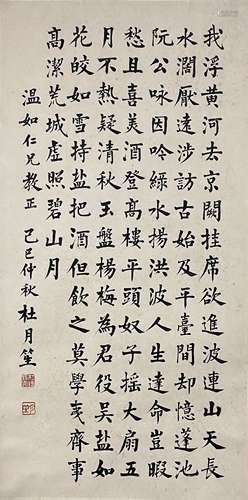 我浮黄河去京闕挂席欲進波連山天長
水濶厭遠涉訪古始及平臺間却憶蓬池
阮公咏因吟緑水揚洪波人生達命豈暇
愁且喜美酒登高樓平頭奴子摇大扇五
月不熱疑清秋玉盤楊梅為君役吴盐如
花皎如雪持盐把酒但飲之莫學夷齊事
高潔荒城虚照碧山月
温如仁兄教正 己巳仲秋 杜月笙